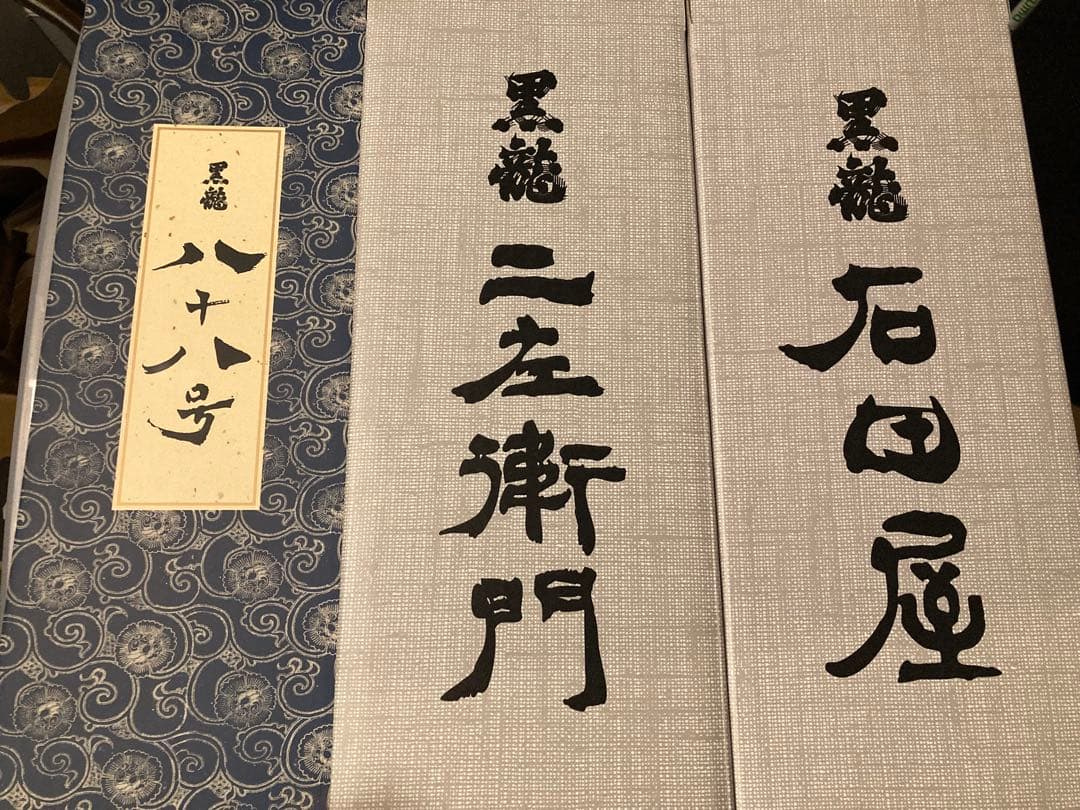 黒龍
八十八号
黒龍
二左衛門
黒龍
石田屋